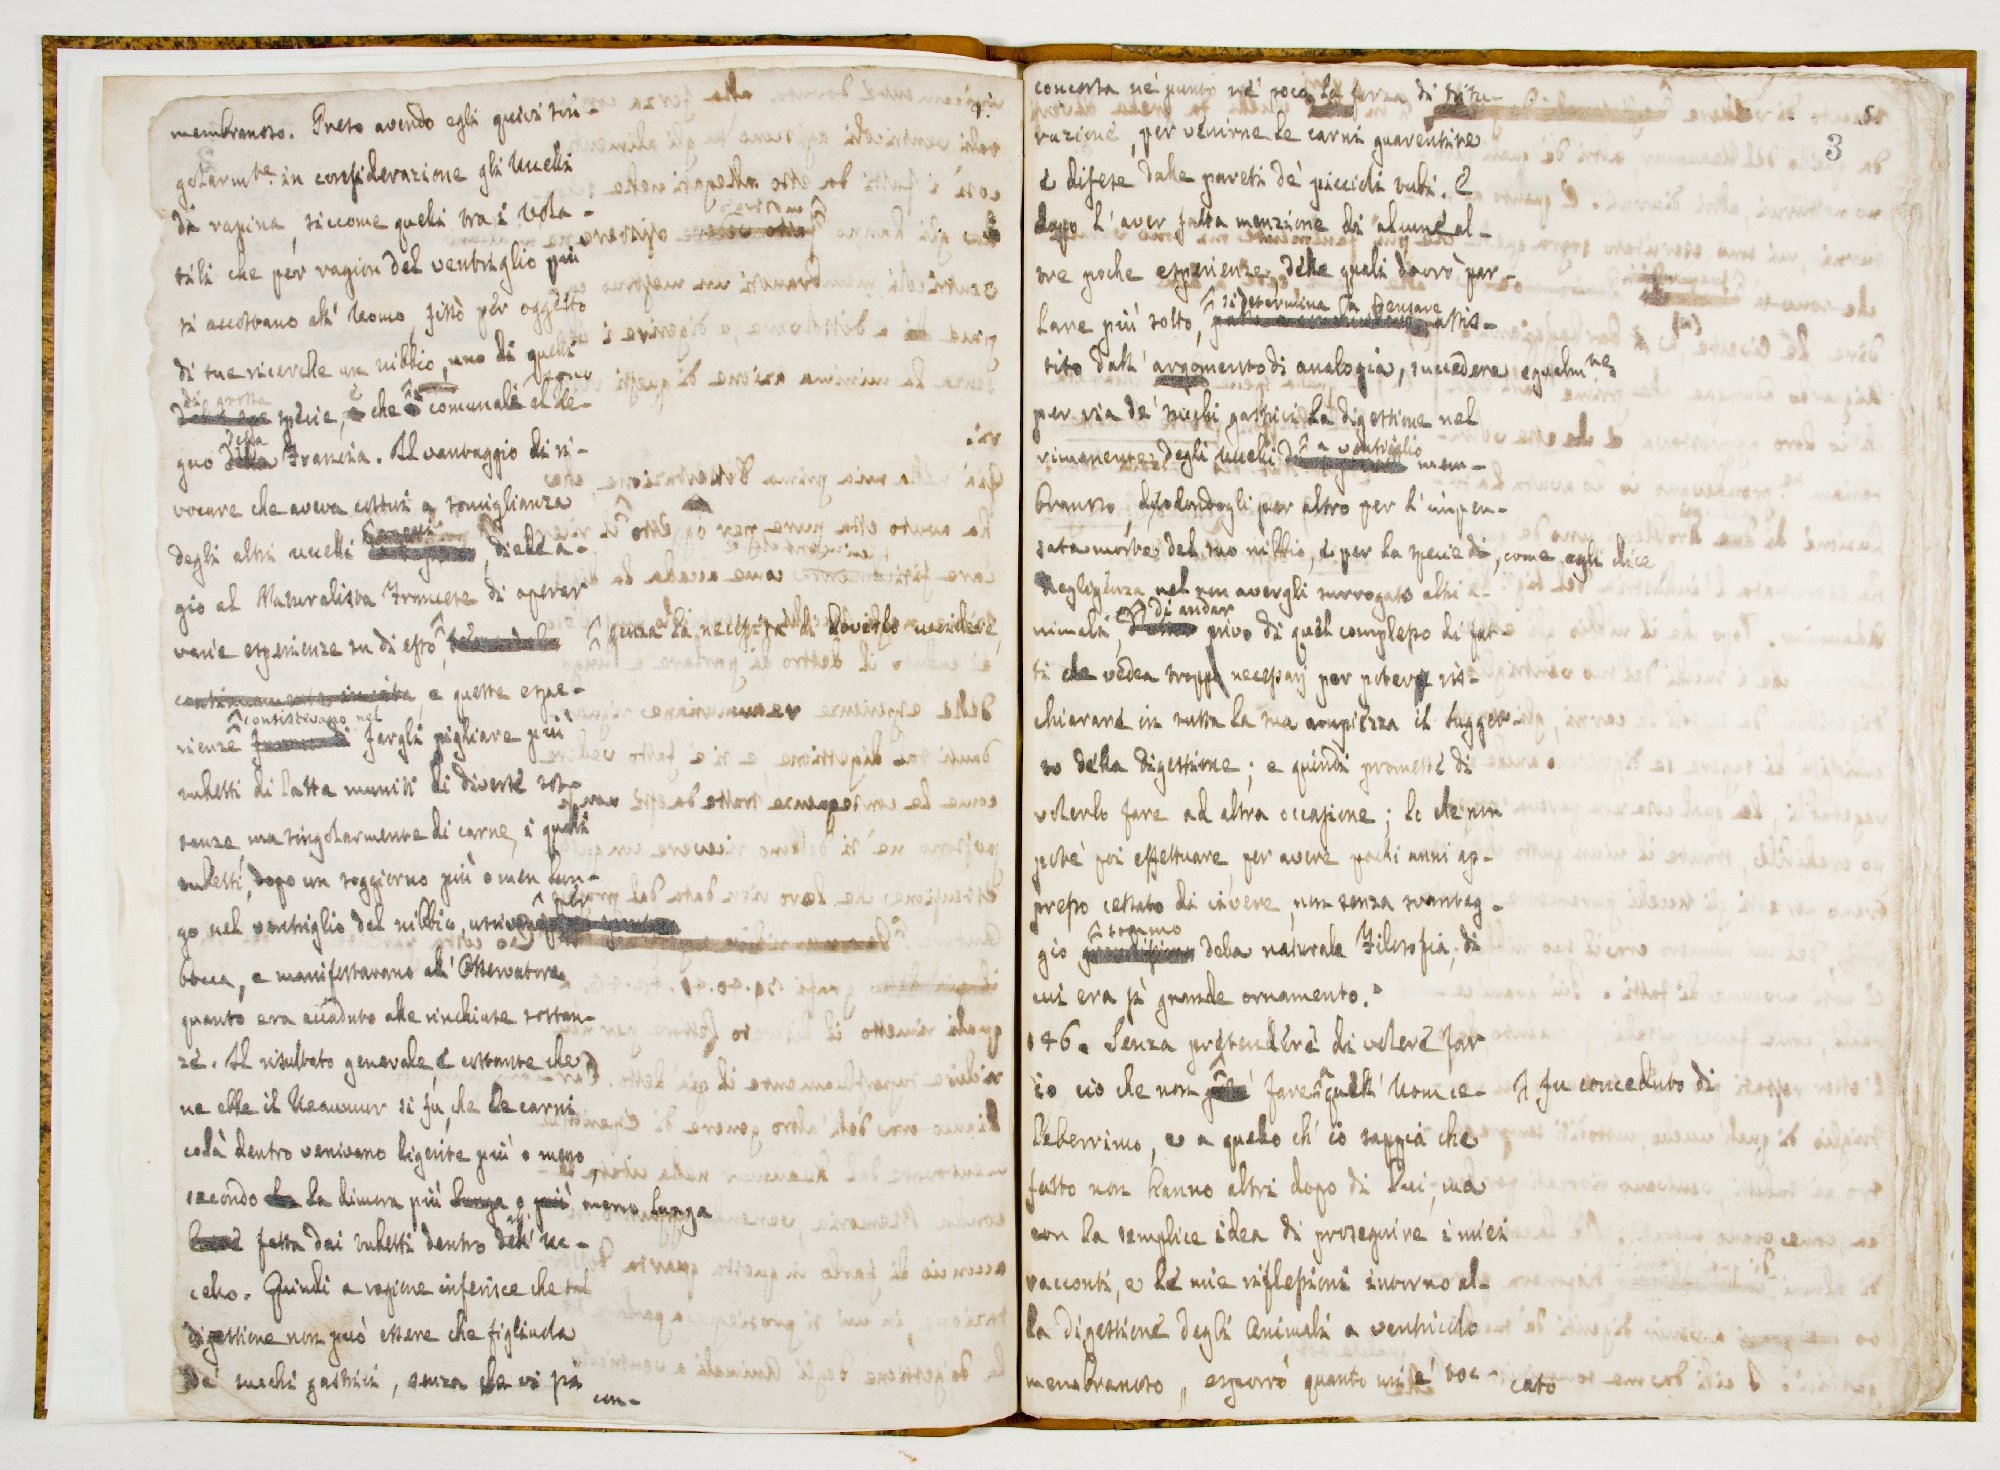 membranoso. Preso avendo egli quivi sin-
golarmte. in considerazione gli Uccelli
da rapina, siccome quelli tra i vola-
tili che per ragion del ventriglio più
si accostano all' Uomo, fissò per oggetto
di sue ricerche un nibbio, uno di quelli
di grossa specie, che sono comunali al Re-
gno della Francia. Il vantaggio di ri-
vocare che aveva costui a somiglianza
degli altri uccelli, diede a-
gio al Naturalista Francese di operar
varie esperienze su di esso, senza la necessità di doverlo uccidere,
e queste espe-
rienze consistevano nel fargli pigliare più
tubetti di latta muniti di diverse sos-
tanze ma singolarmente di carne, i quali
tubetti, dopo un soggiorno più o men lun-
go nel ventriglio del nibbio, per
bocca, e manifestavano all' Osservatore
quanto era accaduto alle rinchiuse sostan-
ze. Il risultato generale, e costante che
ne ebbe il Reaumur si fu, che le carni
colà dentro venivano digerite più o meno,
secondo la dimora più o meno lunga
fatta dai tubetti dentro dell' Uc-
cello. Quindi a ragione inferisce che tal
digestione non può essere che figliuola
de' succhi gastrici, senza che vi pa
con-
5.
3
concorra nè punto nè poco la forza di tritu-
razione, per venirne le carni guarentite
e difese dalle pareti de' piccioli tubi. E
dopo l' aver fatta menzione di alcune al-
tre poche esperienze delle quali dovrò par-
lare più sotto, si determina a pensare assis-
tito dall' argomento di analogia, succedere egualmte
per via de' succhi gastrici la digestione nel
rimanente degli uccelli a ventriglio mem-
branoso, dolendogli per altro per l' impen-
sata morte del suo nibbio, e per la specie di, come egli dice
negligenza nel non avergli surrogato altri a-
nimali, di andar privo di quel complesso di fat-
ti che vedea troppo necessarj per poter ris-
chiarare in tutta la sua ampiezza il sugget-
to della digestione; e quindi promette di
volerlo fare ad altra occasione; lo che non
potè poi effettuare, per avere pochi anni ap-
presso cessato di vivere, non senza svantag-
gio sommo della naturale Filosofia, di
cui era sì grande ornamento.
146. Senza pretendere di volere far
io ciò che non fu conceduto di fare a quell' Uom ce-
leberrimo, e a quello ch' io sappia che
fatto non hanno altri dopo di Lui, ma
con la semplice idea di proseguire i miei
racconti, e le mie riflessioni intorno al-
la digestione degli Animali a ventricolo
membranoso, esporrò quanto mi è toc-
cato